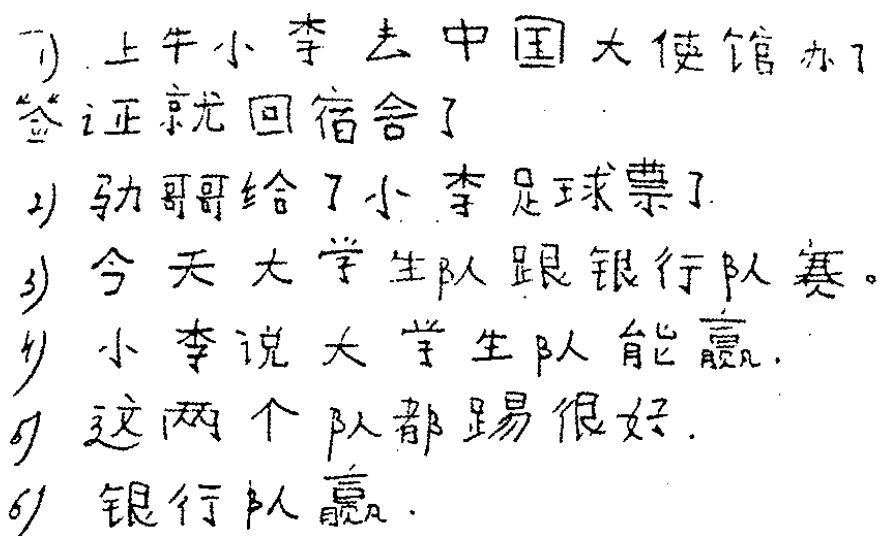 1) 上牛小李去中国大使馆办了
签证就回宿舍了
2) 哥哥给了小李足球票了
3) 今天大学生队跟银行队赛。
4) 小李说大学生队能赢.
5) 这两个队都踢很好.
6) 银行队赢.